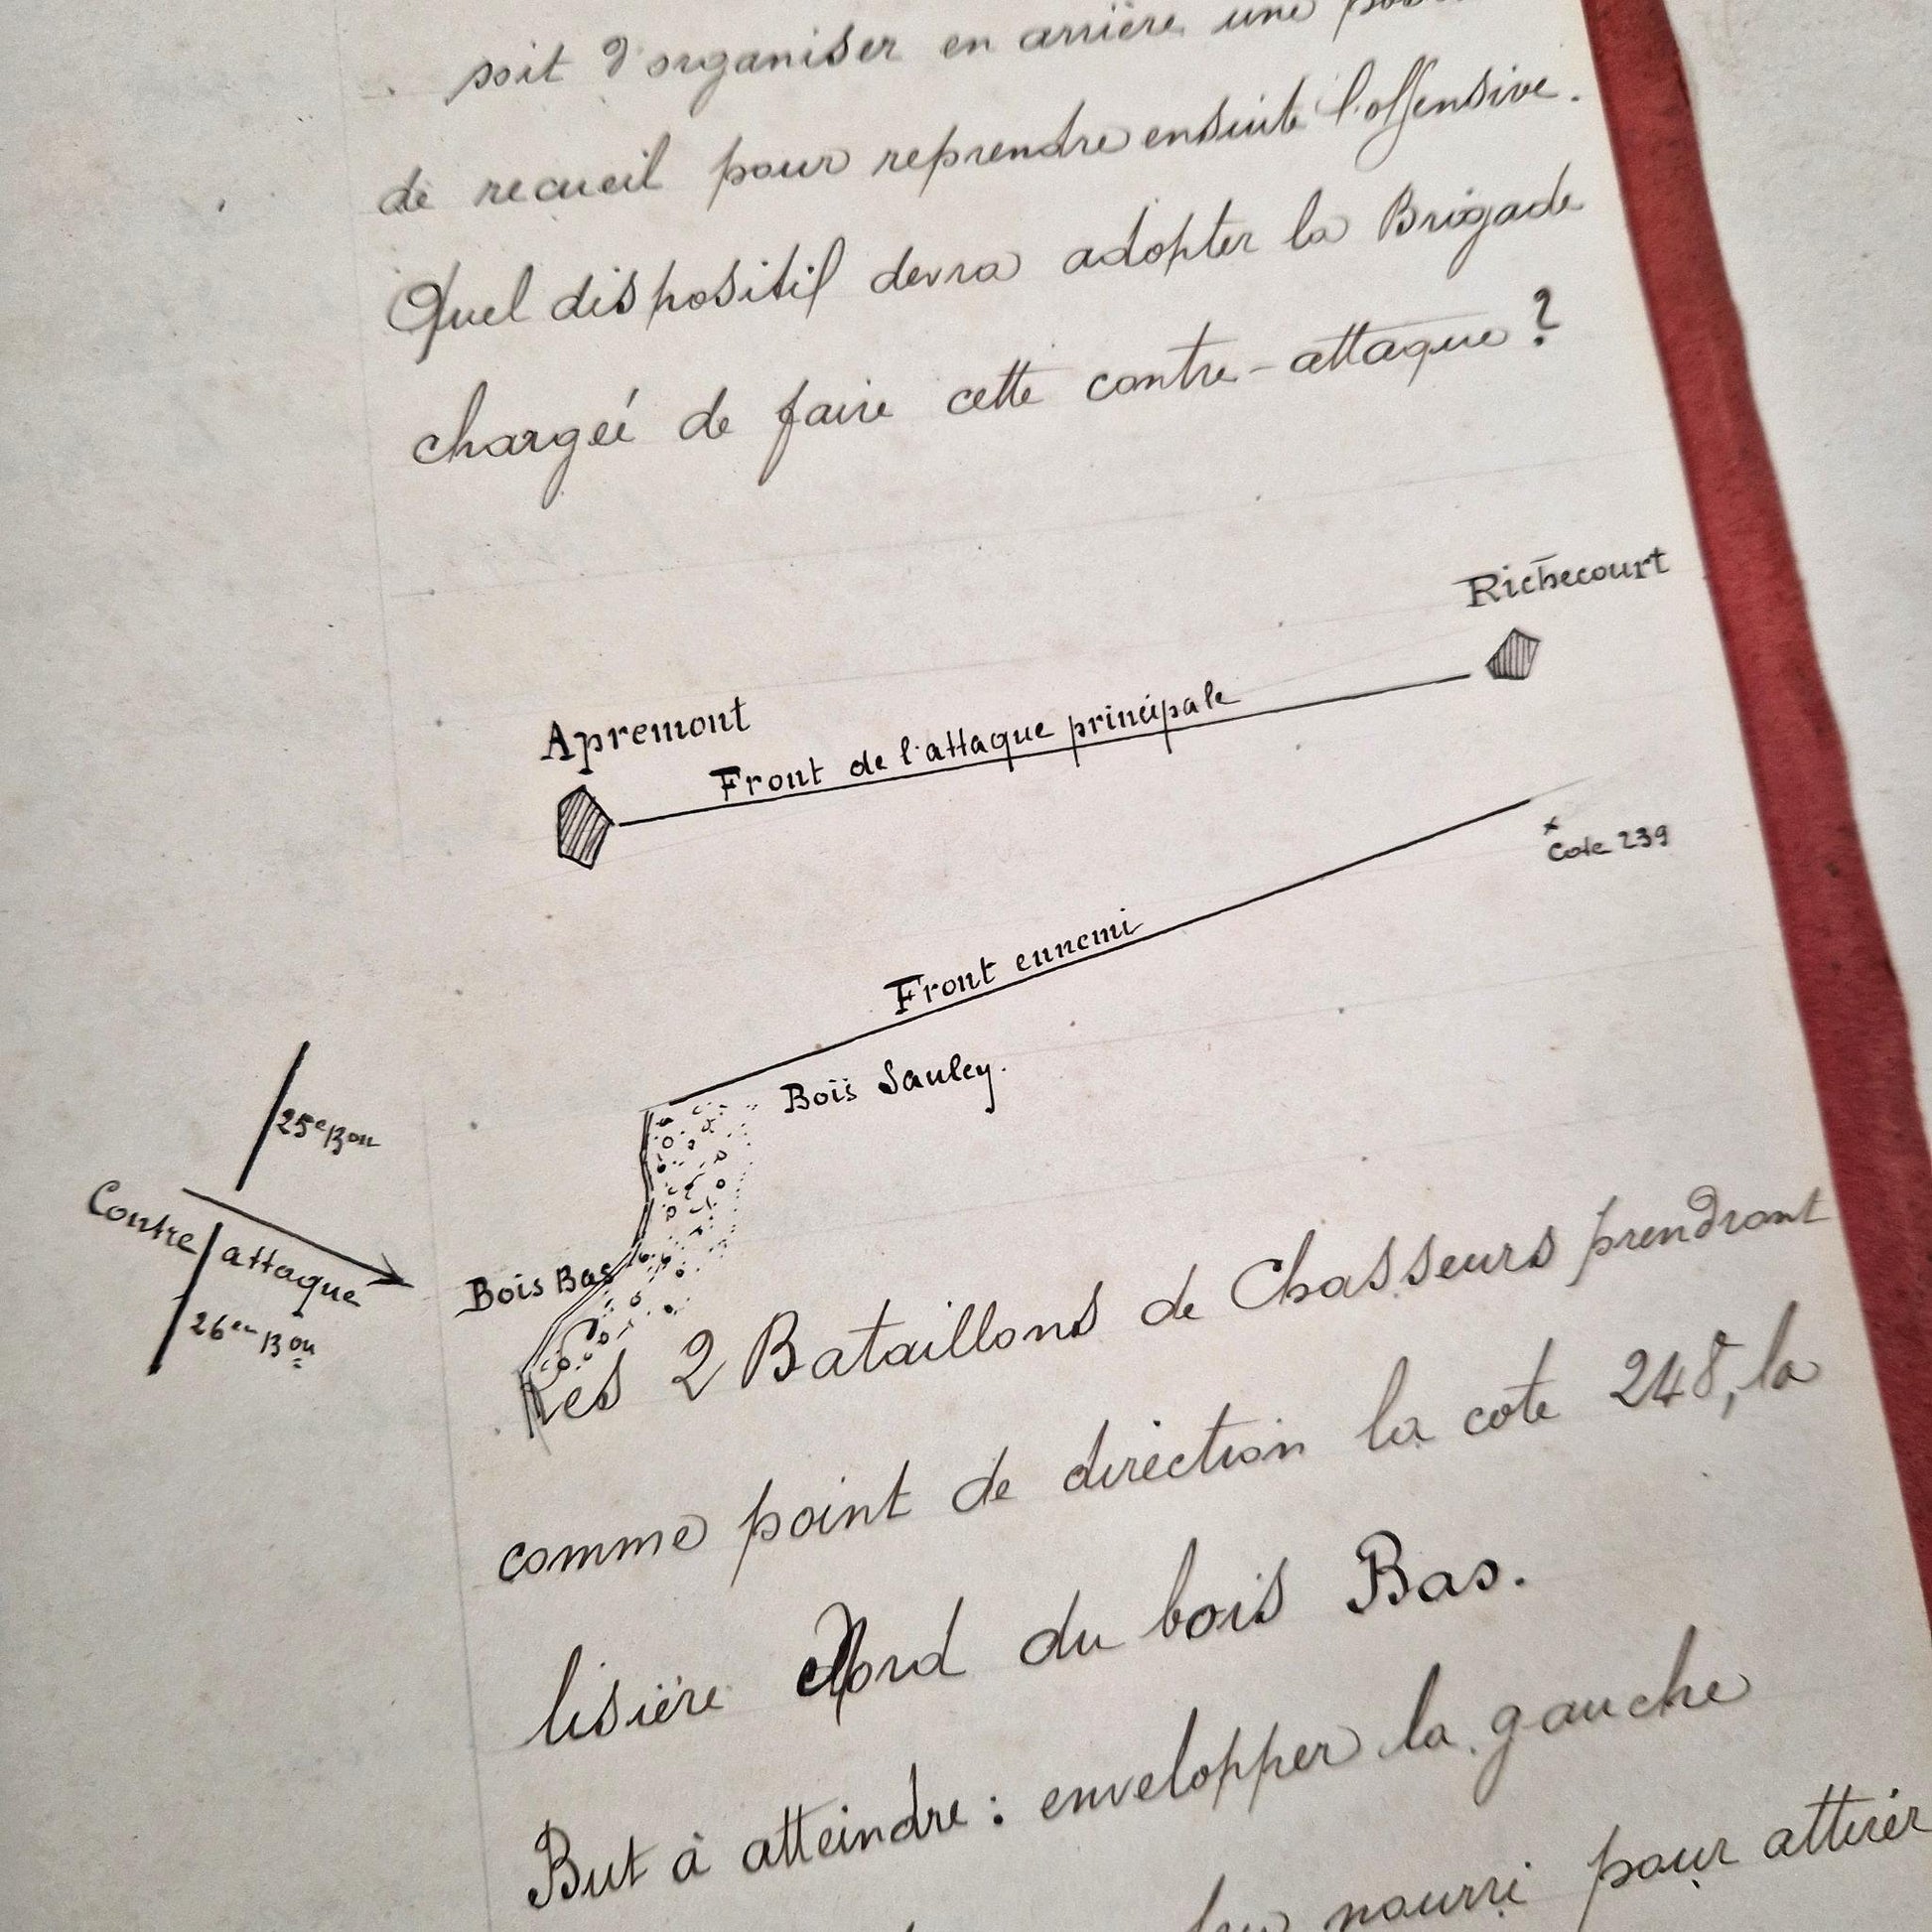 soit d'organiser en arrière une
de recueil pour reprendre ensuite l'offensive.
Quel dispositif devra adopter la Brigade
chargée de faire cette contre-attaque?
Richecourt
Apremont
Front de l'attaque principale
Cote 239
Front ennemi
Bois Sauley.
25e Bon
Contre attaque
26e Bon
Bois Bas
Les 2 Bataillons de Chasseurs prendront
comme point de direction la cote 248, la
lisière Nord du bois Bas.
But à atteindre: envelopper la gauche
nourri pour attirer